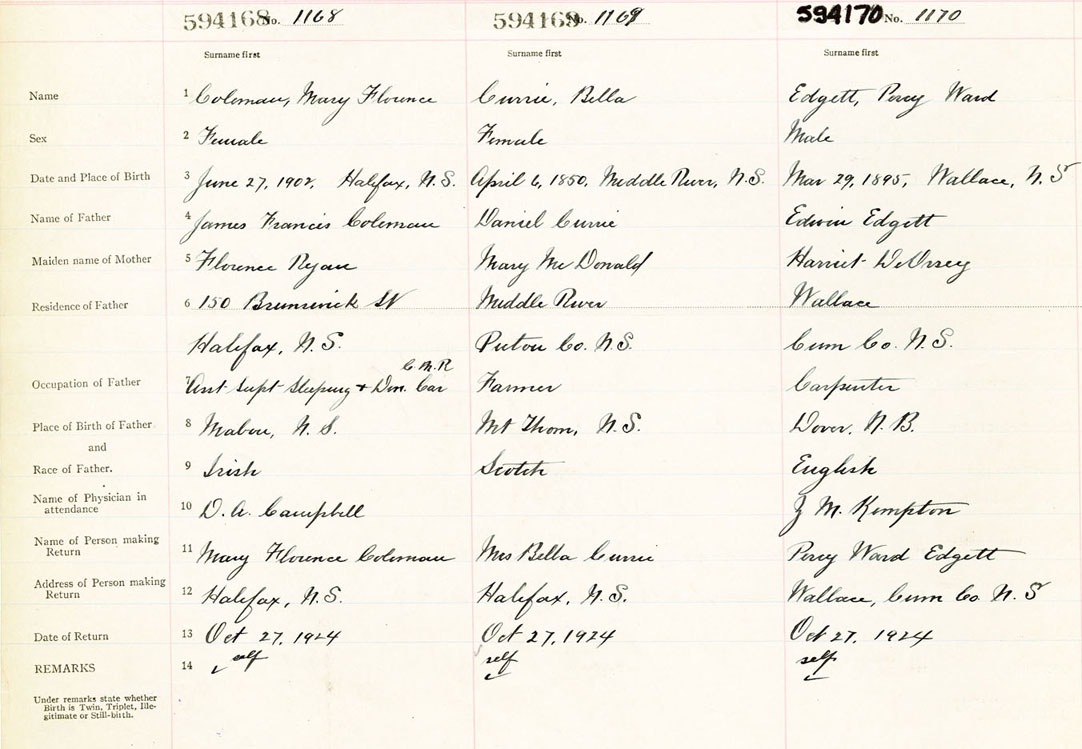 594168 No. 1168 594169 No. 1169 594170 No. 1170
Surname first Surname first Surname first
Name 1 Coleman, Mary Florence Currie, Bella Edgett, Percy Ward
Sex 2 Female Female Male
Date and Place of Birth 3 June 27, 1902, Halifax, N.S. April 6, 1850, Middle River, N.S. Mar 29, 1895, Wallace, N.S
Name of Father 4 James Francis Coleman Daniel Currie Edwin Edgett
Maiden name of Mother 5 Florence Ryan Mary McDonald Harriet
Residence of Father 6 150 Brunswick St Middle River Wallace
Halifax, N.S. Pictou Co. N.S. Cum Co. N.S.
C.N.R
Occupation of Father 7 Asst Supt Sleeping + Din. Car Farmer Carpenter
Place of Birth of Father 8 Mabou, N.S. Mt Thom, N.S. Dover, N.B.
and
Race of Father. 9 Irish Scotch English
Name of Physician in
attendance 10 D. A. Campbell M. Kempton
Name of Person making
Return 11 Mary Florence Coleman Mrs Bella Currie Percy Ward Edgett
Address of Person making
Return 12 Halifax, N.S. Halifax, N.S. Wallace, Cum Co. N.S
Date of Return 13 Oct 27, 1924 Oct 27, 1924 Oct 27, 1924
REMARKS 14 self self self
Under remarks state whether
Birth is Twin, Triplet, Ille-
gitimate or Still-birth.